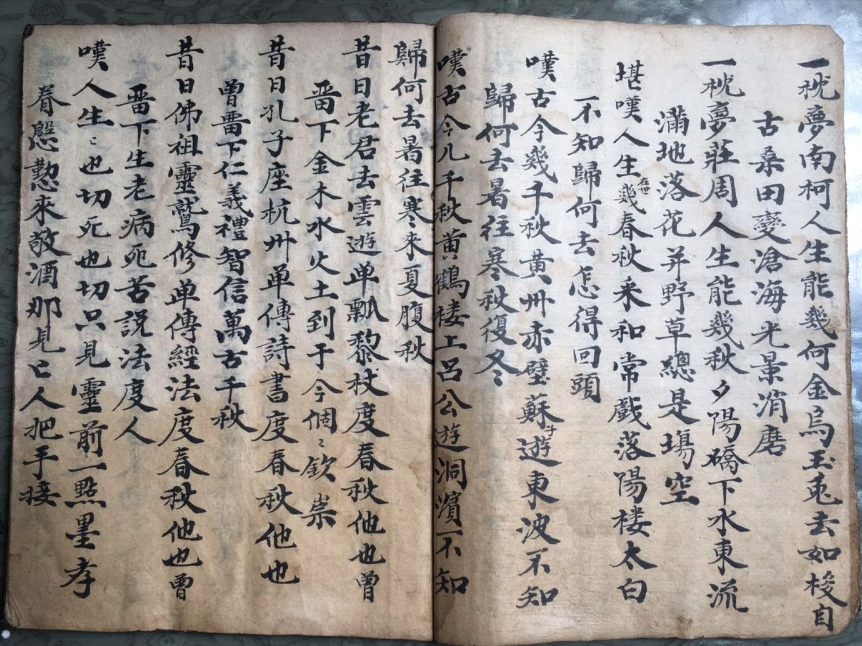 一枕夢南柯人生能幾何金烏玉兎去如梭自
古桑田変滄海光景消磨
一枕夢莊周人生能幾秋夕陽橋下水東流
滿地落花并野草總是塲空
堪嘆人生幾春秋来和常戲落陽樓太白
不知歸何去怎得回頭
嘆古今幾千秋黄州赤璧蘇才遊東波不知
歸何去暑往寒秋復冬
嘆古今几千秋黄鶴楼上呂公遊洞濱不知
歸何去暑往寒来夏腹秋
昔日老君去雲遊单瓢黎杖度春秋他也曾
畱下金木水火土到于今個〻欽崇
昔日孔子座杭州单傳詩書度春秋他也
曾畱下仁義禮智信萬古千秋
昔日佛祖靈鷲修单傳經法度春秋他也曾
畱下生老病死苦説法度人
嘆人生〻也切死也切只見靈前一點墨孝
眷慇懃来敬酒那見亡人把手接